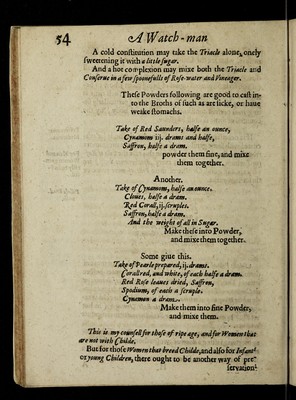 54 A Watch-man
A cold constitution may take the Triacle alone, onely
sweetening it with a little sugar.
And a hot complexion may mixe both the Triacle and
Conserue in a few spoonefulls of Rose-water and Vineager.
These Powders following are good to cast in-
to the Broths of such as are sicke, or haue
weake stomachs.
Take of Red Saunders, halfe an ounce,
Cynamom iij. drams and halfe,
Saffron, halfe a dram.
powder them fine, and mixe
them together.
Another.
Take of Cynamom, halfe an ounce.
Cloues, halfe a dram.
Red Corall, ij. scruples.
Saffron, halfe a dram.
And the weight of all in Sugar.
Make these into Powder,
and mixe them together.
Some giue this.
Take of Pearle prepared, ij. drams.
Corall red, and white, of each halfe a dram.
Red Rose leaues dried, Saffron,
Spodium, of each a scruple.
Cynamon a dram.
Make them into fine Powder,
and mixe them.
This is my counsell for those of ripe age, and for Women that
are not with Childe.
But for those Women that breed Childe, and also for Infants
or young Children, there ought to be another way of pre-
seruation: